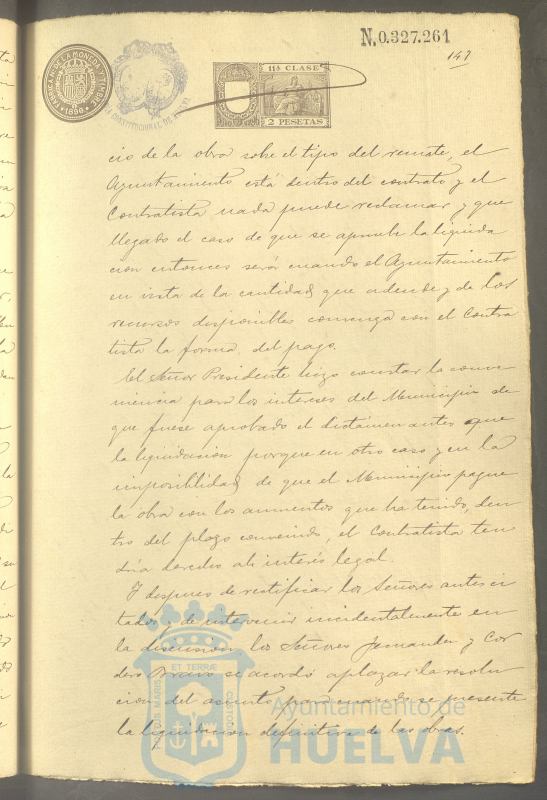 N.0.327.261
147
FABRICA N. DE LA MONEDA Y TIMBRE
1890
CONSTITUCIONAL DE
11ª CLASE
2 PESETAS
cio de la obra sobre el tipo del remate, el
Ayuntamiento está dentro del contrato y el
Contratista nada puede reclamar y que
llegado el caso de que se apruebe la liquida
cion entonces será cuando el Ayuntamiento
en vista de la cantidad que adeude y de los
recursos disponibles convenga con el Contra
tista la forma del pago.
El Señor Presidente hizo constar la conve
niencia para los intereses del Municipio de
que fuese aprobado el dictámen antes que
la liquidacion porque en otro caso y en la
imposiblidad de que el Municipio pague
la obra con los aumentos que ha tenido, den
tro del plazo convenido, el Contratista ten
dría derecho al interés legal.
Y despues de rectificar los Señores antes ci
tados y de intervenir incidentalmente en
la discusion los Señores Fernandez y Cor
dero Bravo se acordó aplazar la resolu
cion del asunto para cuando se presente
la liquidacion definitiva de las obras.
PORTUS MARIS ET TERRÆ CUSTODIA
Ayuntamiento de
HUELVA